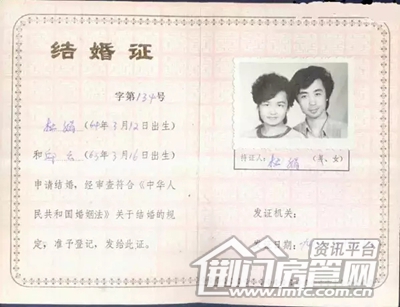 结婚证
字第134号
杜娟(64年3月12日出生)
和 (63年3月16日出生)
申请结婚,经审查符合《中华人
民共和国婚姻法》关于结婚的规
定,准予登记,发给此证。
持证人:杜娟(男、女)
发证机关:
日期:
资讯平台
荆门房管网
www.jmfc.com.cn